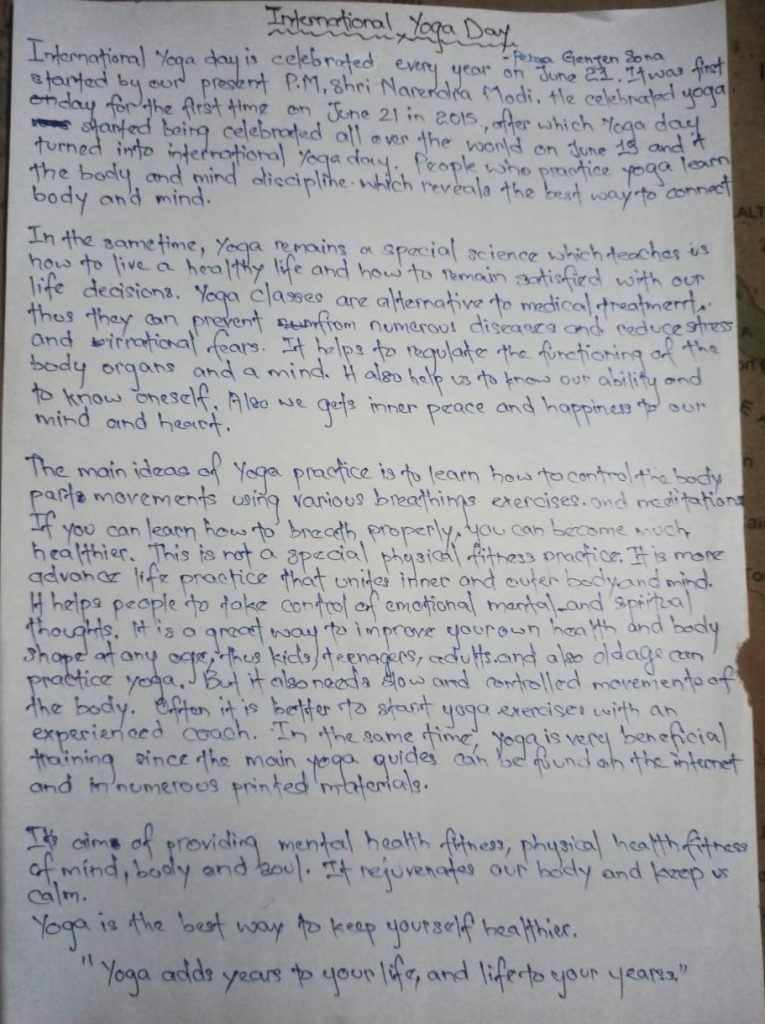 International Yoga Day
- Pema Genjen Sona
International Yoga day is celebrated every year on June 21. It was first
started by our present P.M, Shri Narendra Modi. He celebrated yoga
day for the first time on June 21 in 2015, after which Yoga day
started being celebrated all over the world on June 19 and it
turned into international Yoga day. People who practice yoga learn
the body and mind discipline. which reveals the best way to connect
body and mind.
In the sametime, Yoga remains a special science which teaches us
how to live a healthy life and how to remain satisfied with our
life decisions. Yoga Classes are alternative to medical treatment,
thus they can prevent from numerous diseases and reduce stress
and irrational fears. It helps to regulate the functioning of the
body organs and a mind. It also help us to know our ability and
to know oneself. Also we gets inner peace and happiness to our
mind and heart.
The main ideas of Yoga practice is to learn how to control the body
parts movements using various breathings exercises. and meditations
If you can learn how to breath properly, you can become much
healthier. This is not a special physical fitness practice. It is more
advance life practice that unites inner and outer body and mind.
It helps people to take control of emotional mental and spiritual
thoughts. It is a great way to improve your own health and body
shape at any age, thus kids, teenagers, adults and also old age can
practice yoga. But it also needs slow and controlled movements of
the body. Often it is better to start yoga exercises with an
experienced coach. In the same time, yoga is very beneficial
training since the main yoga guides can be found on the internet
and in numerous printed materials.
Its aims of providing mental health fitness, physical health fitness
of mind, body and soul. It rejuvenates our body and keep us
calm.
Yoga is the best way to keep yourself healthier.
"Yoga adds years to your life, and life to your years."